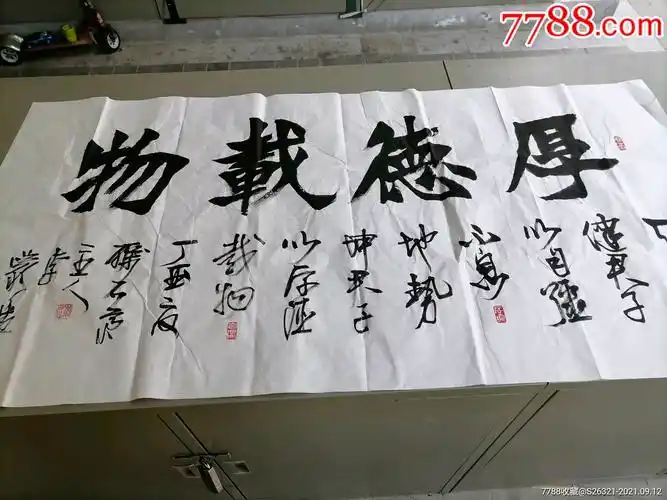 7788.com
厚德載物
健君子
以自强
不息
地勢
坤君子
以厚德
載物
丁酉夏
主人
李
7788收藏@S26321-2021.09.12